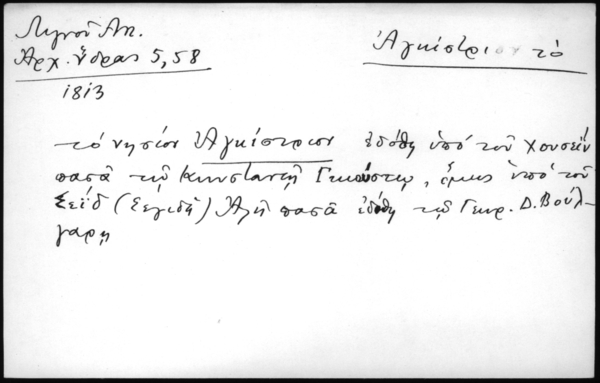 Λιγνοῦ Ἀπ.
Ἀρχ. Ὕδρας 5, 58
Ἀγκίστριον τό
1813
τό νησίον Ἀγκίστριον ἐδόθη ὑπό τοῦ Χουσεΐν
πασᾶ τῷ Κωνσταντῇ Γκιούστῳ, ὅμως ὑπό τοῦ
Σεΐδ (Σεγιδῆ) Ἀλῆ πασᾶ ἐδόθη τῷ Γεωρ. Δ. Βούλ-
γαρη